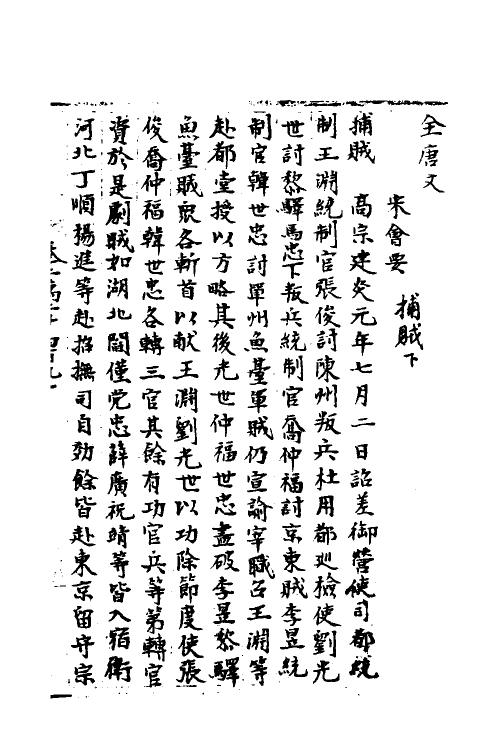 全唐文
宋會要
捕賊下
捕賊　高宗建炎元年七月二日詔差御營使司都統
制王淵統制官張俊討陳州叛兵杜用都巡檢使劉光
世討黎驛馬忠下叛兵統制官喬仲福討京東賊李昱統
制官韓世忠討單州魚臺軍賊仍宣諭宰職召王淵等
赴都堂授以方略其後光世仲福世忠盡破李昱黎驛
魚臺賊眾各斬首以献王淵劉光世以功除節度使張
俊喬仲福韓世忠各轉三官其餘有功官兵等第轉官
資於是劇賊如湖北閻僅党忠薛廣祝靖等皆入宿衛
河北丁順揚進等赴招撫司自効餘皆赴東京留守宗